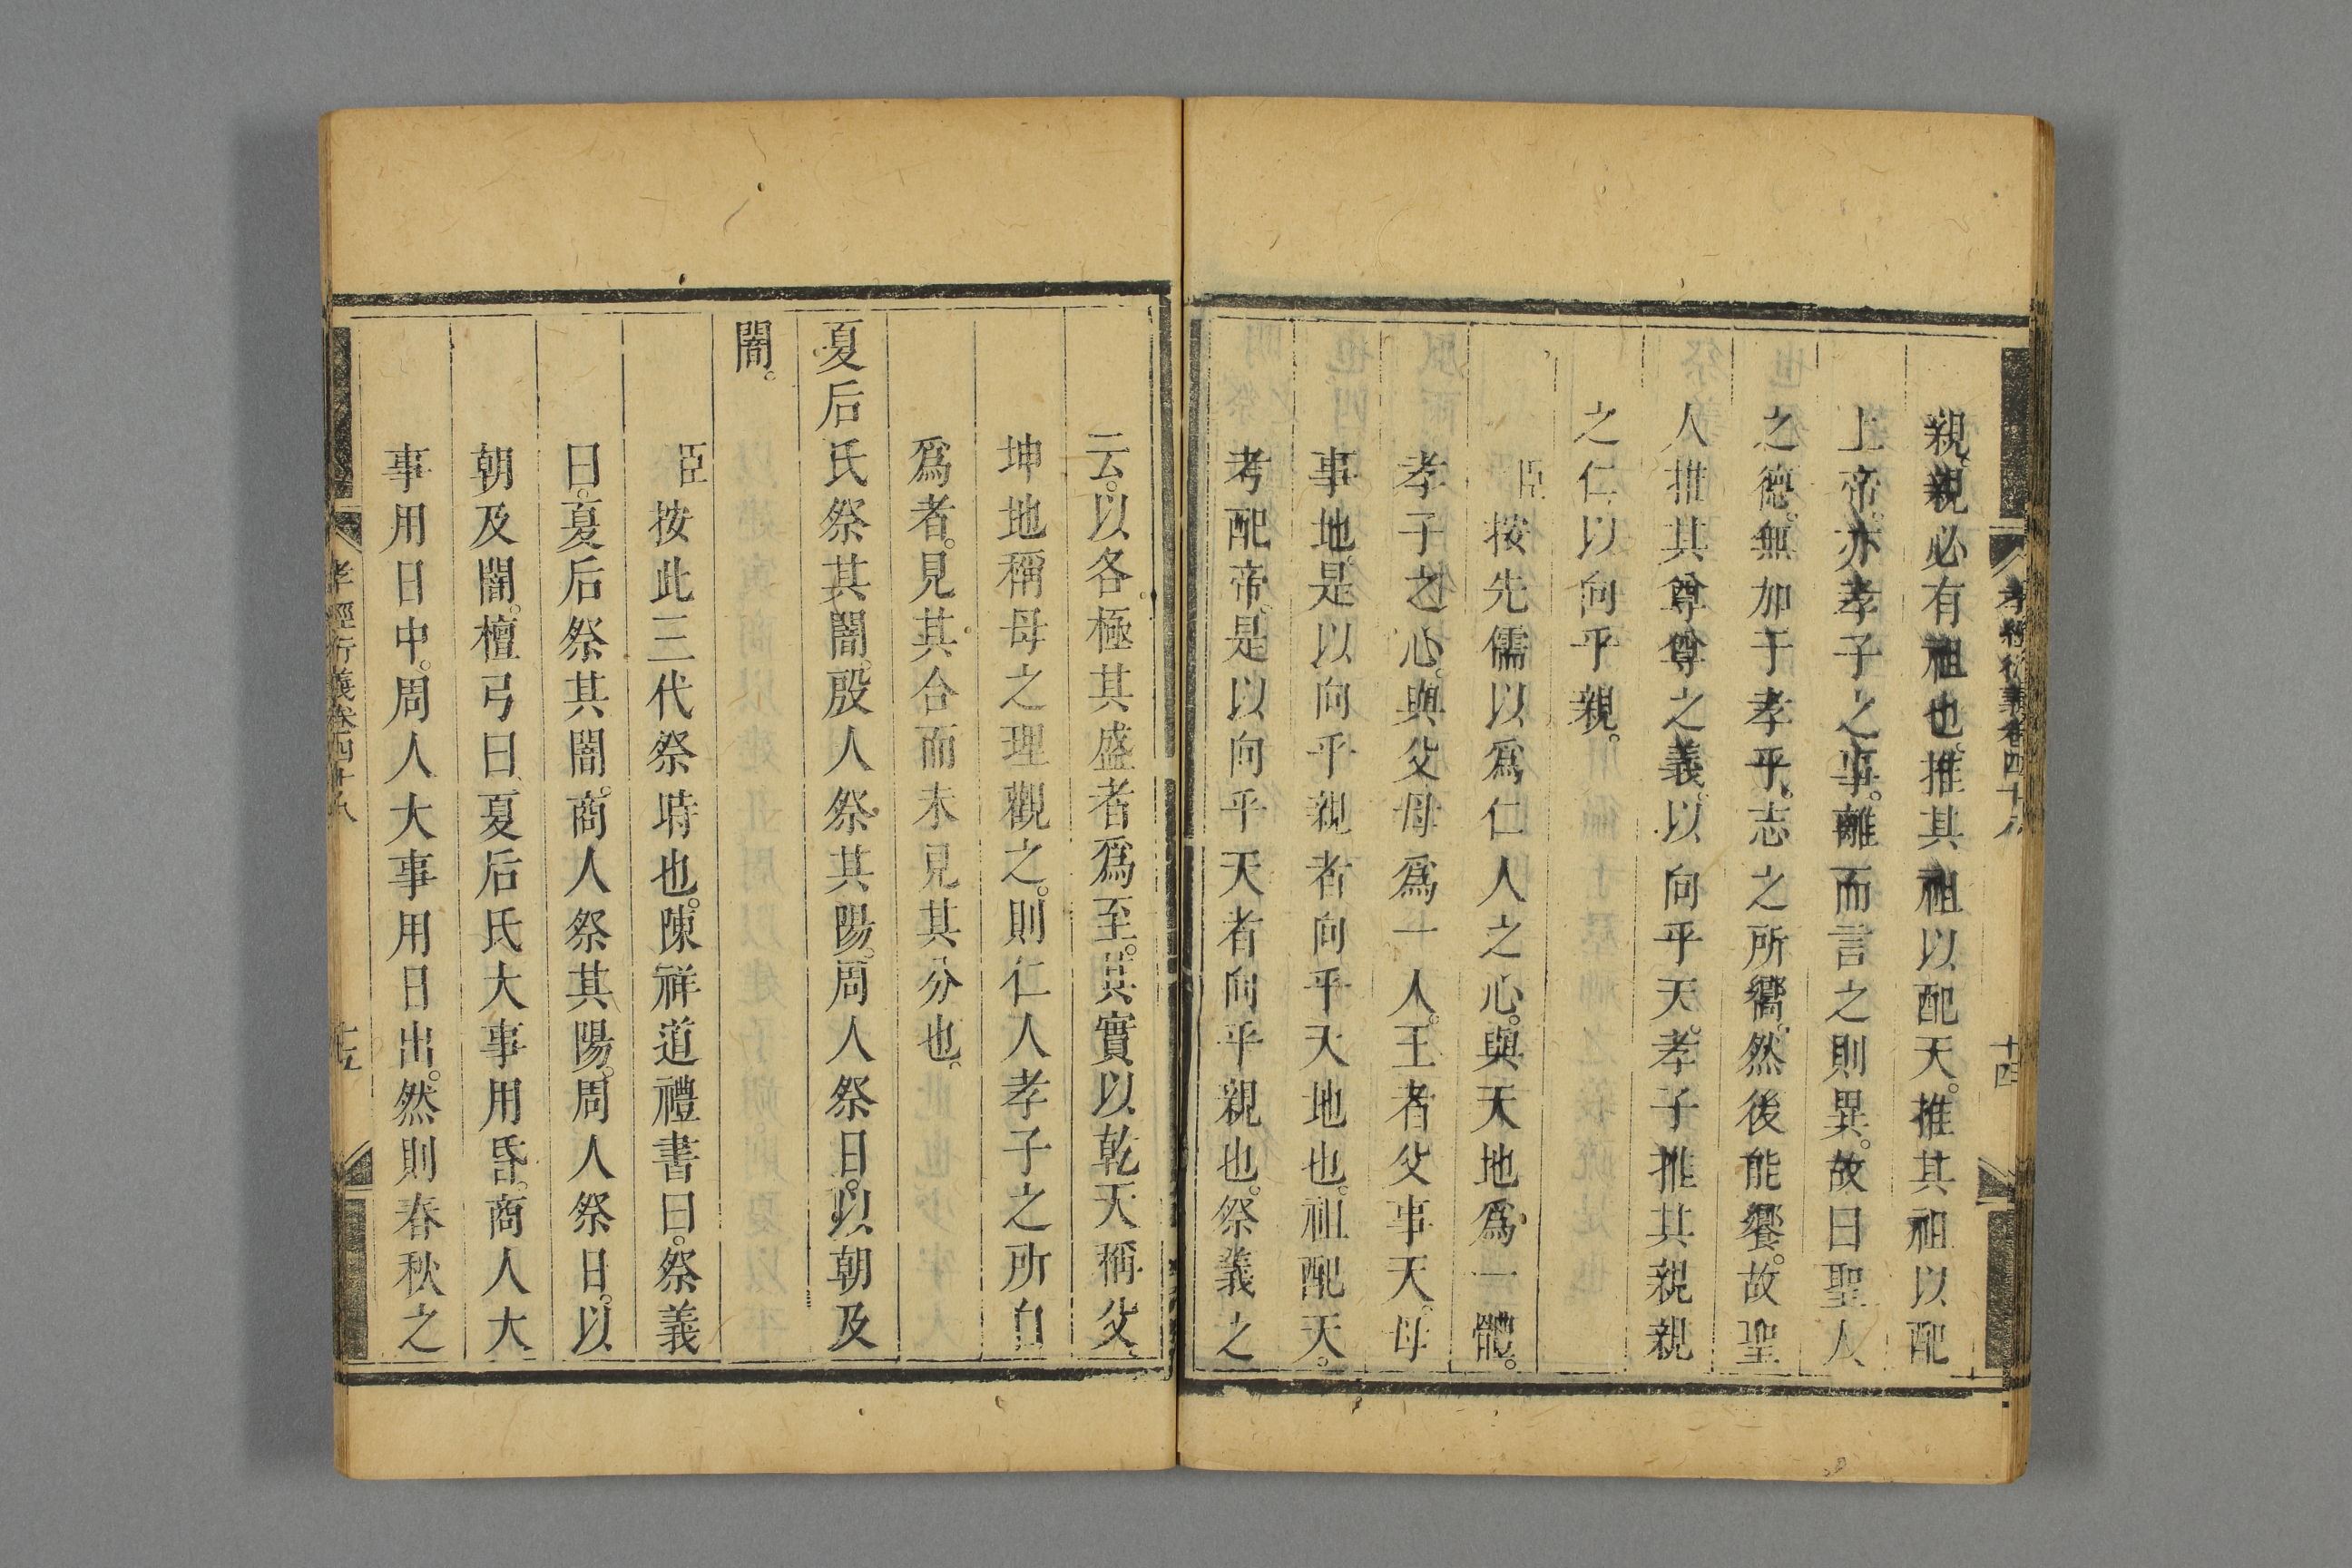 孝經衍義卷四十八
十四
親。親必有祖也。推其祖以配天。推其祖以配
上帝。亦孝子之事。離而言之則異。故曰聖人
之德。無加于孝乎。志之所嚮。然後能饗。故聖
人推其尊尊之義。以向乎天。孝子推其親親
之仁。以向乎親。
臣按先儒以爲仁人之心。與天地爲一體。
孝子之心。與父母爲一人。王者父事天。母
事地。是以向乎親者向乎天地也。祖配天。
考配帝。是以向乎天者向乎親也。祭義之
云。以各極其盛者爲至。其實以乾天稱父。
坤地稱母之理觀之。則仁人孝子之所自
爲者。見其合而未見其分也。
夏后氏祭其闇。殷人祭其陽。周人祭日。以朝及
闇。
臣按此三代祭時也。陳祥道禮書曰。祭義
曰。夏后祭其闇。商人祭其陽。周人祭日。以
朝及闇。檀弓曰。夏后氏大事用昏。商人大
事用日中。周人大事用日出。然則春秋之
孝經衍義卷四十八
十五